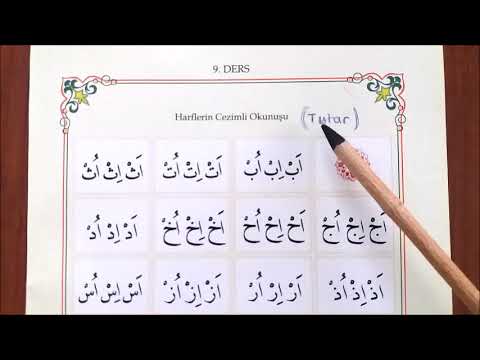 9. DERS
Harflerin Cezimli Okunuşu (Tutar)
اَبْ اِبْ اُبْ اَتْ اِتْ اُتْ اَثْ اِثْ اُثْ
اَجْ اِجْ اُجْ اَحْ اِحْ اُحْ اَخْ اِخْ اُخْ اَدْ اِدْ اُدْ
اَذْ اِذْ اُذْ اَرْ اِرْ اُرْ اَزْ اِزْ اُزْ اَسْ اِسْ اُسْ